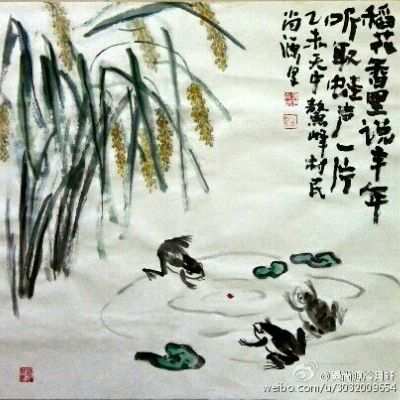 稻花香里说丰年
听取蛙声一片
乙未天中鳌峰村民
weibo.com/u/3032009554